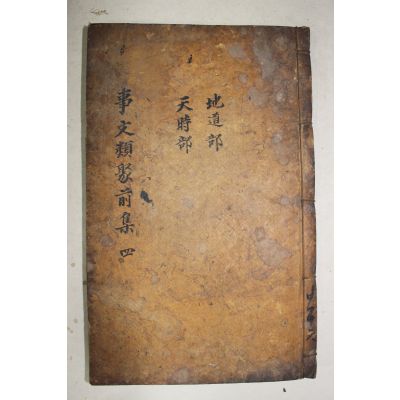 地道部
天時部
事文類聚前集 四